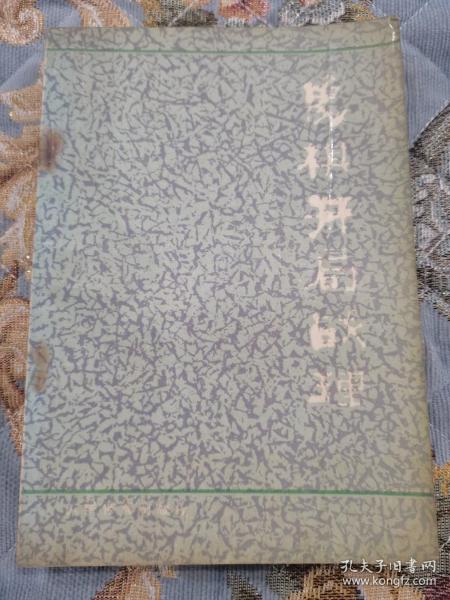 飛相开局战理
孔夫子旧书网
www.kongfz.com